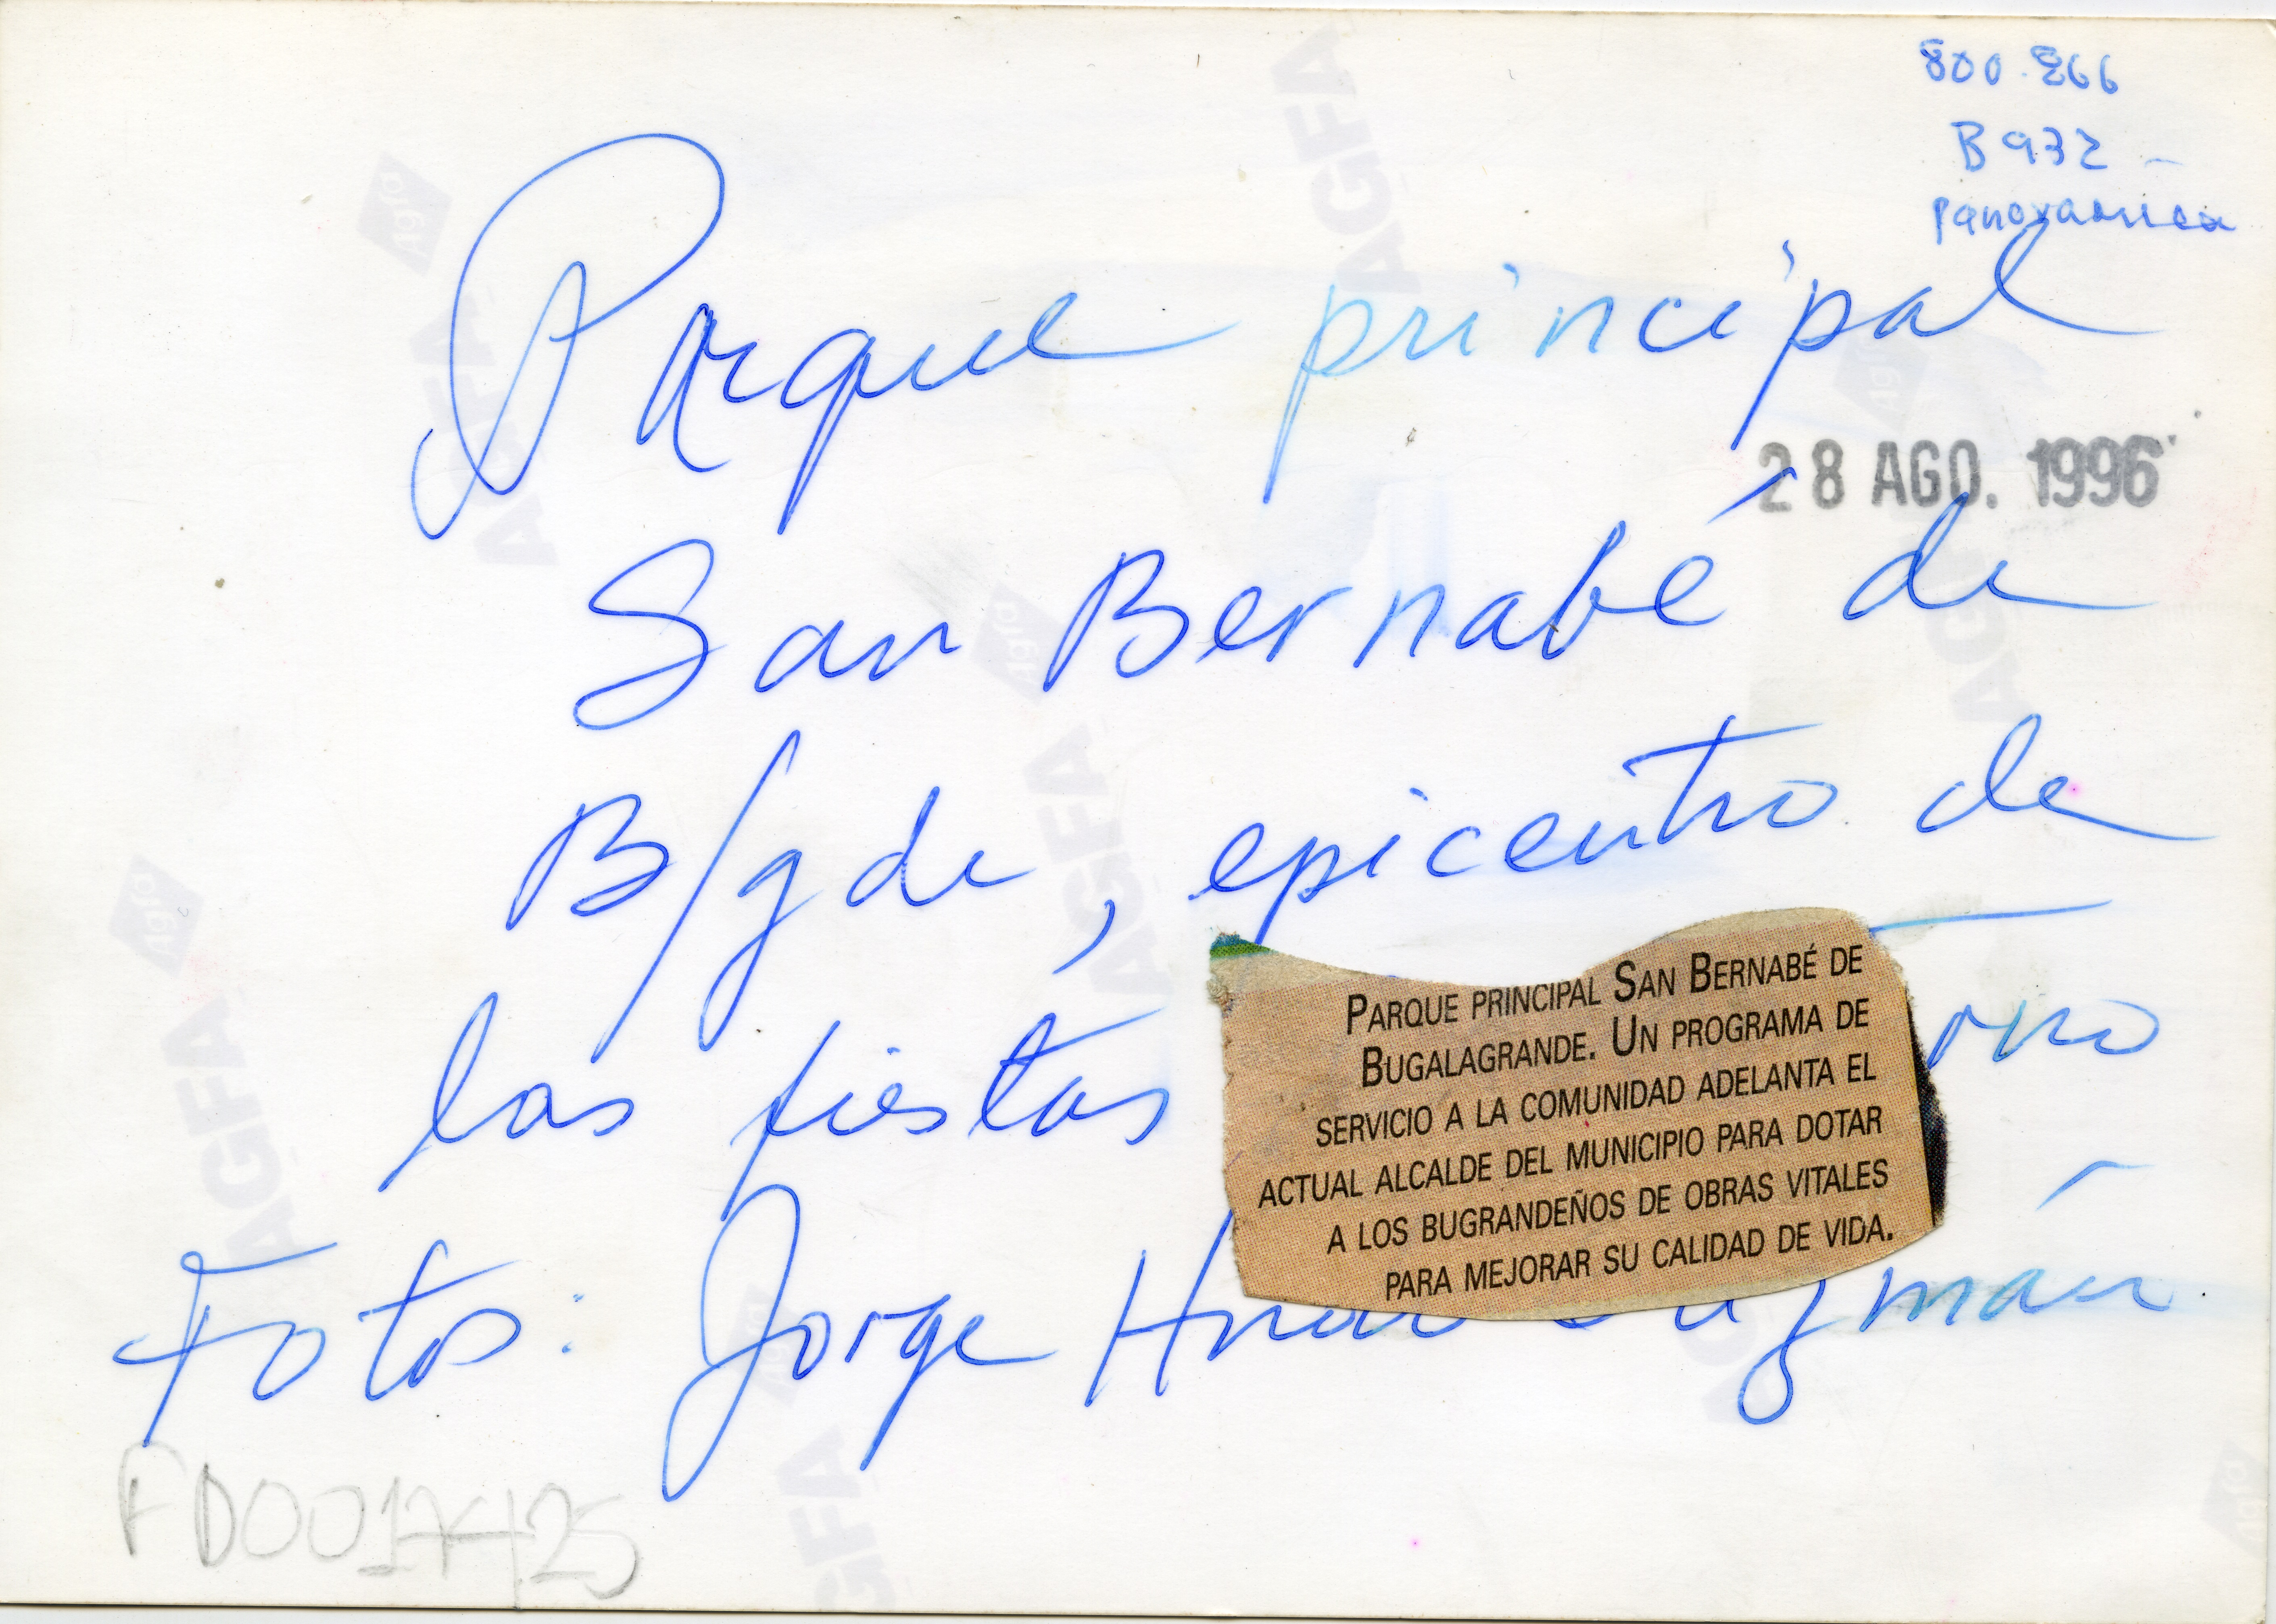 800.866
B932 -
Panoramica
Parque principal
28 AGO. 1996
San Bernabé de
B/gde, epicentro de
las fiestas
PARQUE PRINCIPAL SAN BERNABÉ DE
BUGALAGRANDE. UN PROGRAMA DE
SERVICIO A LA COMUNIDAD ADELANTA EL
ACTUAL ALCALDE DEL MUNICIPIO PARA DOTAR
A LOS BUGRANDEÑOS DE OBRAS VITALES
PARA MEJORAR SU CALIDAD DE VIDA.
Fotos: Jorge
FD0017425
AGFA
AGFA
AGFA
AGFA
AGFA